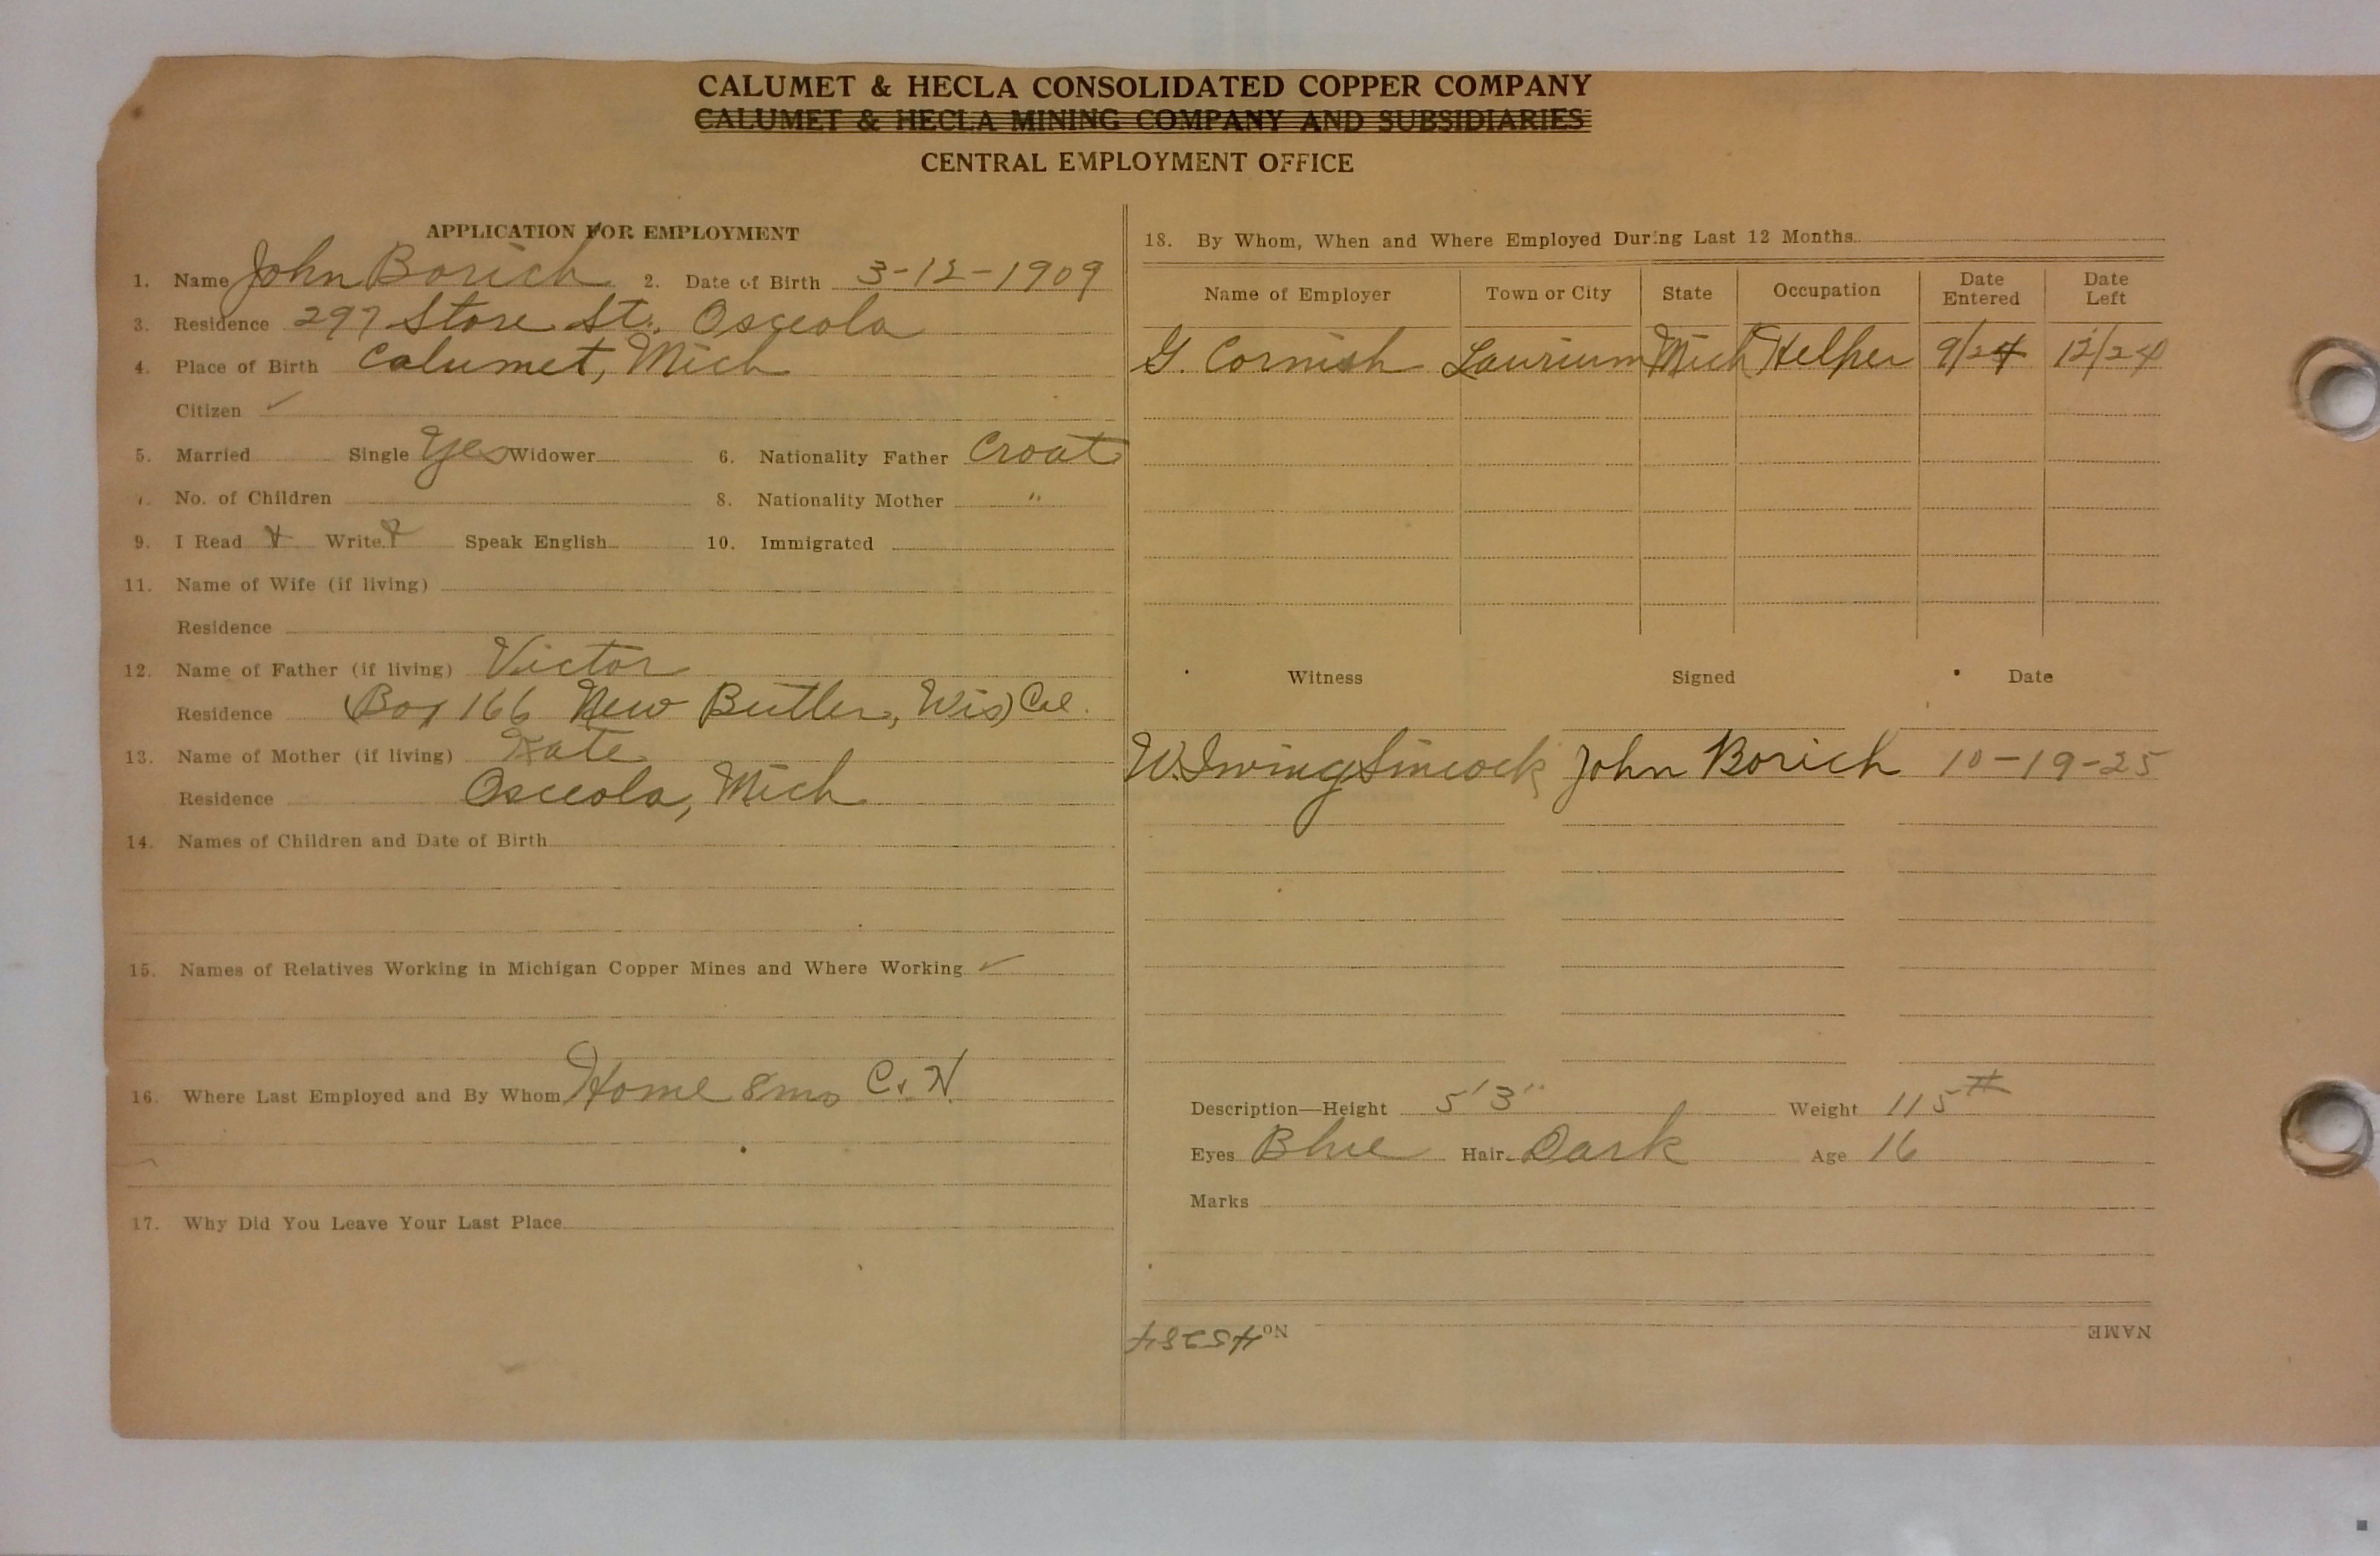 CALUMET & HECLA CONSOLIDATED COPPER COMPANY
CALUMET & HECLA MINING COMPANY AND SUBSIDIARIES
CENTRAL EMPLOYMENT OFFICE
APPLICATION FOR EMPLOYMENT
1. Name John Borich 2. Date of Birth 3-12-1909
3. Residence 297 Store St. Osceola
4. Place of Birth Calumet, Mich
Citizen ✓
5. Married Single Yes Widower 6. Nationality Father Croat
7. No. of Children 8. Nationality Mother "
9. I Read Write Speak English 10. Immigrated
11. Name of Wife (if living)
Residence
12. Name of Father (if living) Victor
Residence (Box 166 New Butler, Wis)
13. Name of Mother (if living) Kate
Residence Osceola, Mich
14. Names of Children and Date of Birth
15. Names of Relatives Working in Michigan Copper Mines and Where Working ✓
16. Where Last Employed and By Whom Home 8 mo
17. Why Did You Leave Your Last Place
18. By Whom, When and Where Employed During Last 12 Months
Name of Employer Town or City State Occupation Date Entered Date Left
G. Cornish Laurium Mich Helper 9/24 12/24
Witness Signed Date
W. Irving Sincock John Borich 10-19-25
Description—Height 5'3" Weight 115#
Eyes Blue Hair Dark Age 16
Marks
NAME No 45284